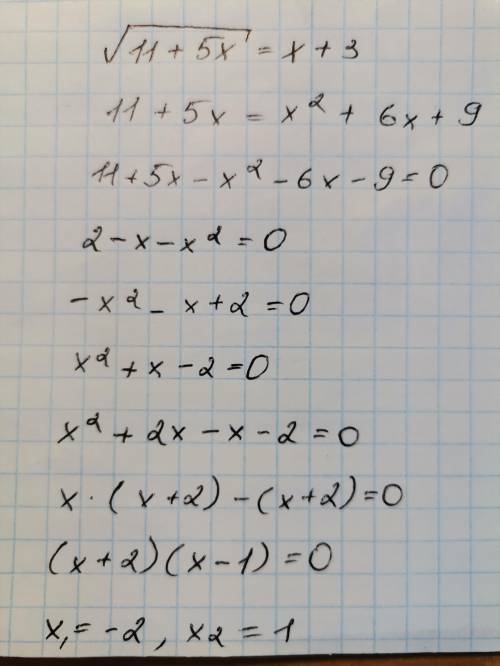 √11 + 5x = x + 3
11 + 5x = x² + 6x + 9
11 + 5x - x² - 6x - 9 = 0
2 - x - x² = 0
-x² - x + 2 = 0
x² + x - 2 = 0
x² + 2x - x - 2 = 0
x · (x + 2) - (x + 2) = 0
(x + 2)(x - 1) = 0
x₁ = -2, x₂ = 1